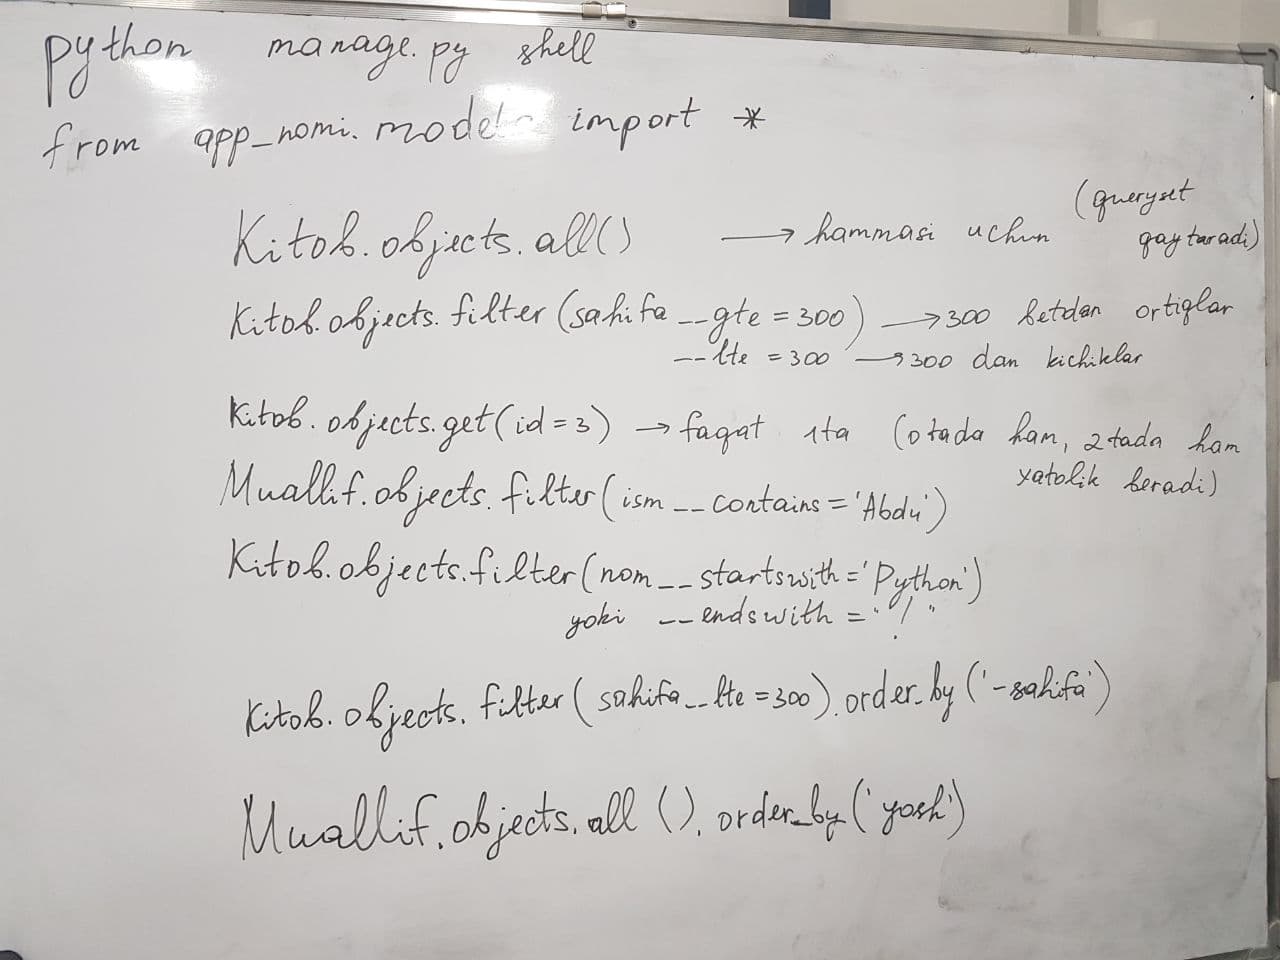 python manage.py shell
from app_nomi.models import *
Kitob.objects.all() → hammasi uchun (queryset
qaytaradi)
Kitob.objects.filter(sahifa__gte=300) → 300 betdan ortiqlar
__lte = 300 → 300 dan kichiklar
Kitob.objects.get(id=3) → faqat 1ta (0tada ham, 2tada ham
xatolik beradi)
Muallif.objects.filter(ism__contains='Abdu')
Kitob.objects.filter(nom__startswith='Python')
yoki __endswith = "!"
Kitob.objects.filter(sahifa__lte=300).order_by('-sahifa')
Muallif.objects.all().order_by('yosh')